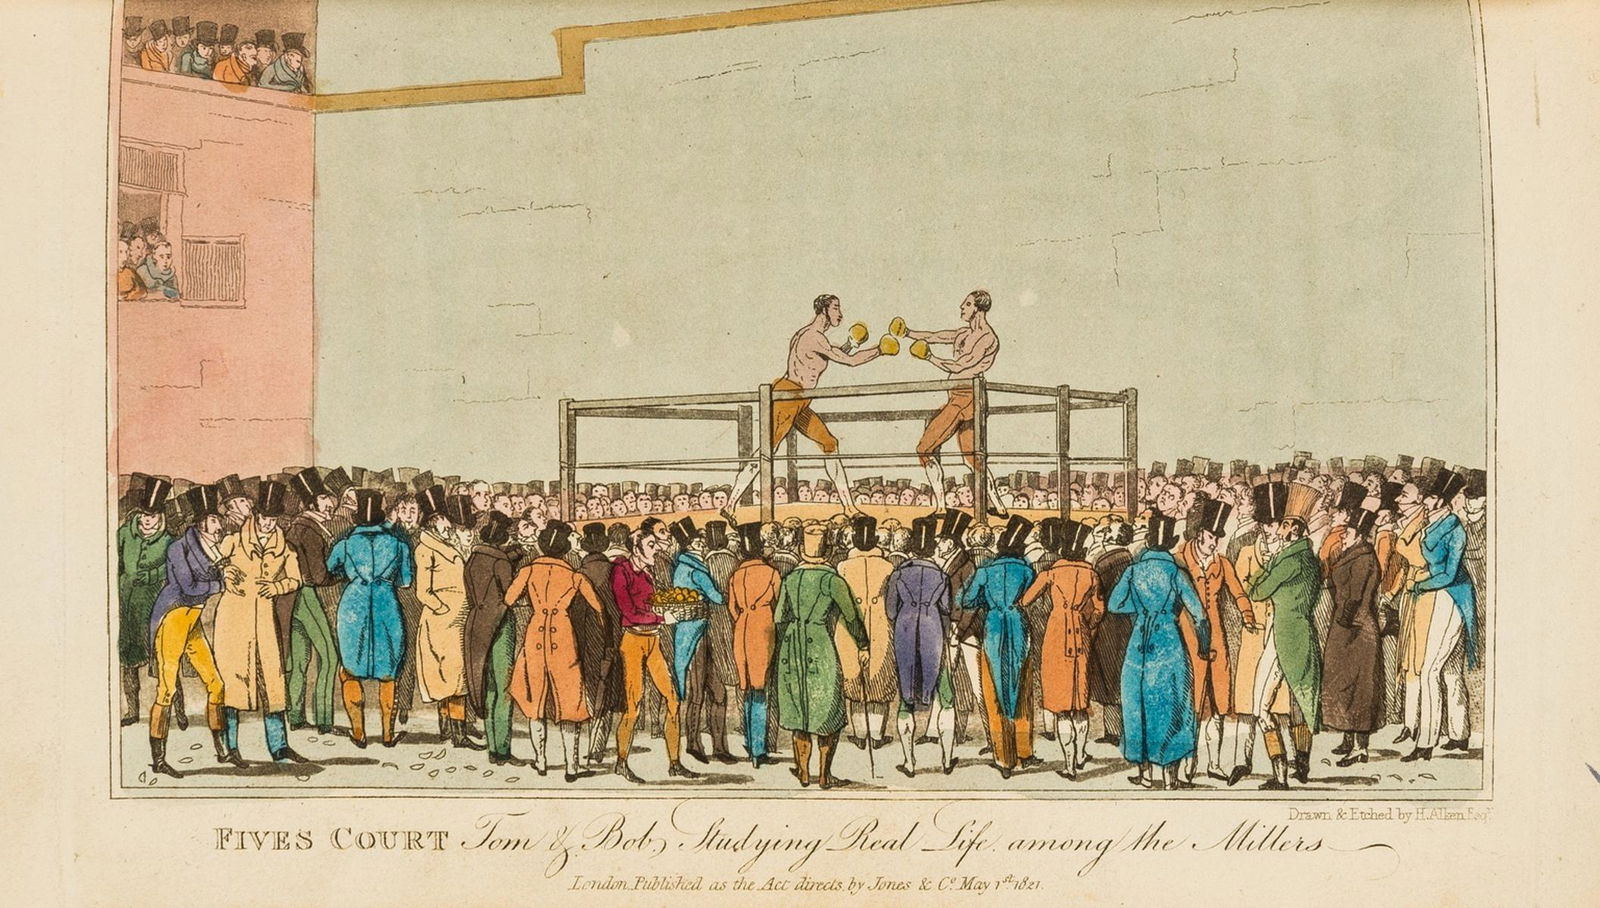 Drawn & Etched by H. Alken Esqr.
FIVES COURT Tom & Bob, Studying Real Life, among the Millers
London, Published as the Act directs, by Jones & Co. May 1st 1821.